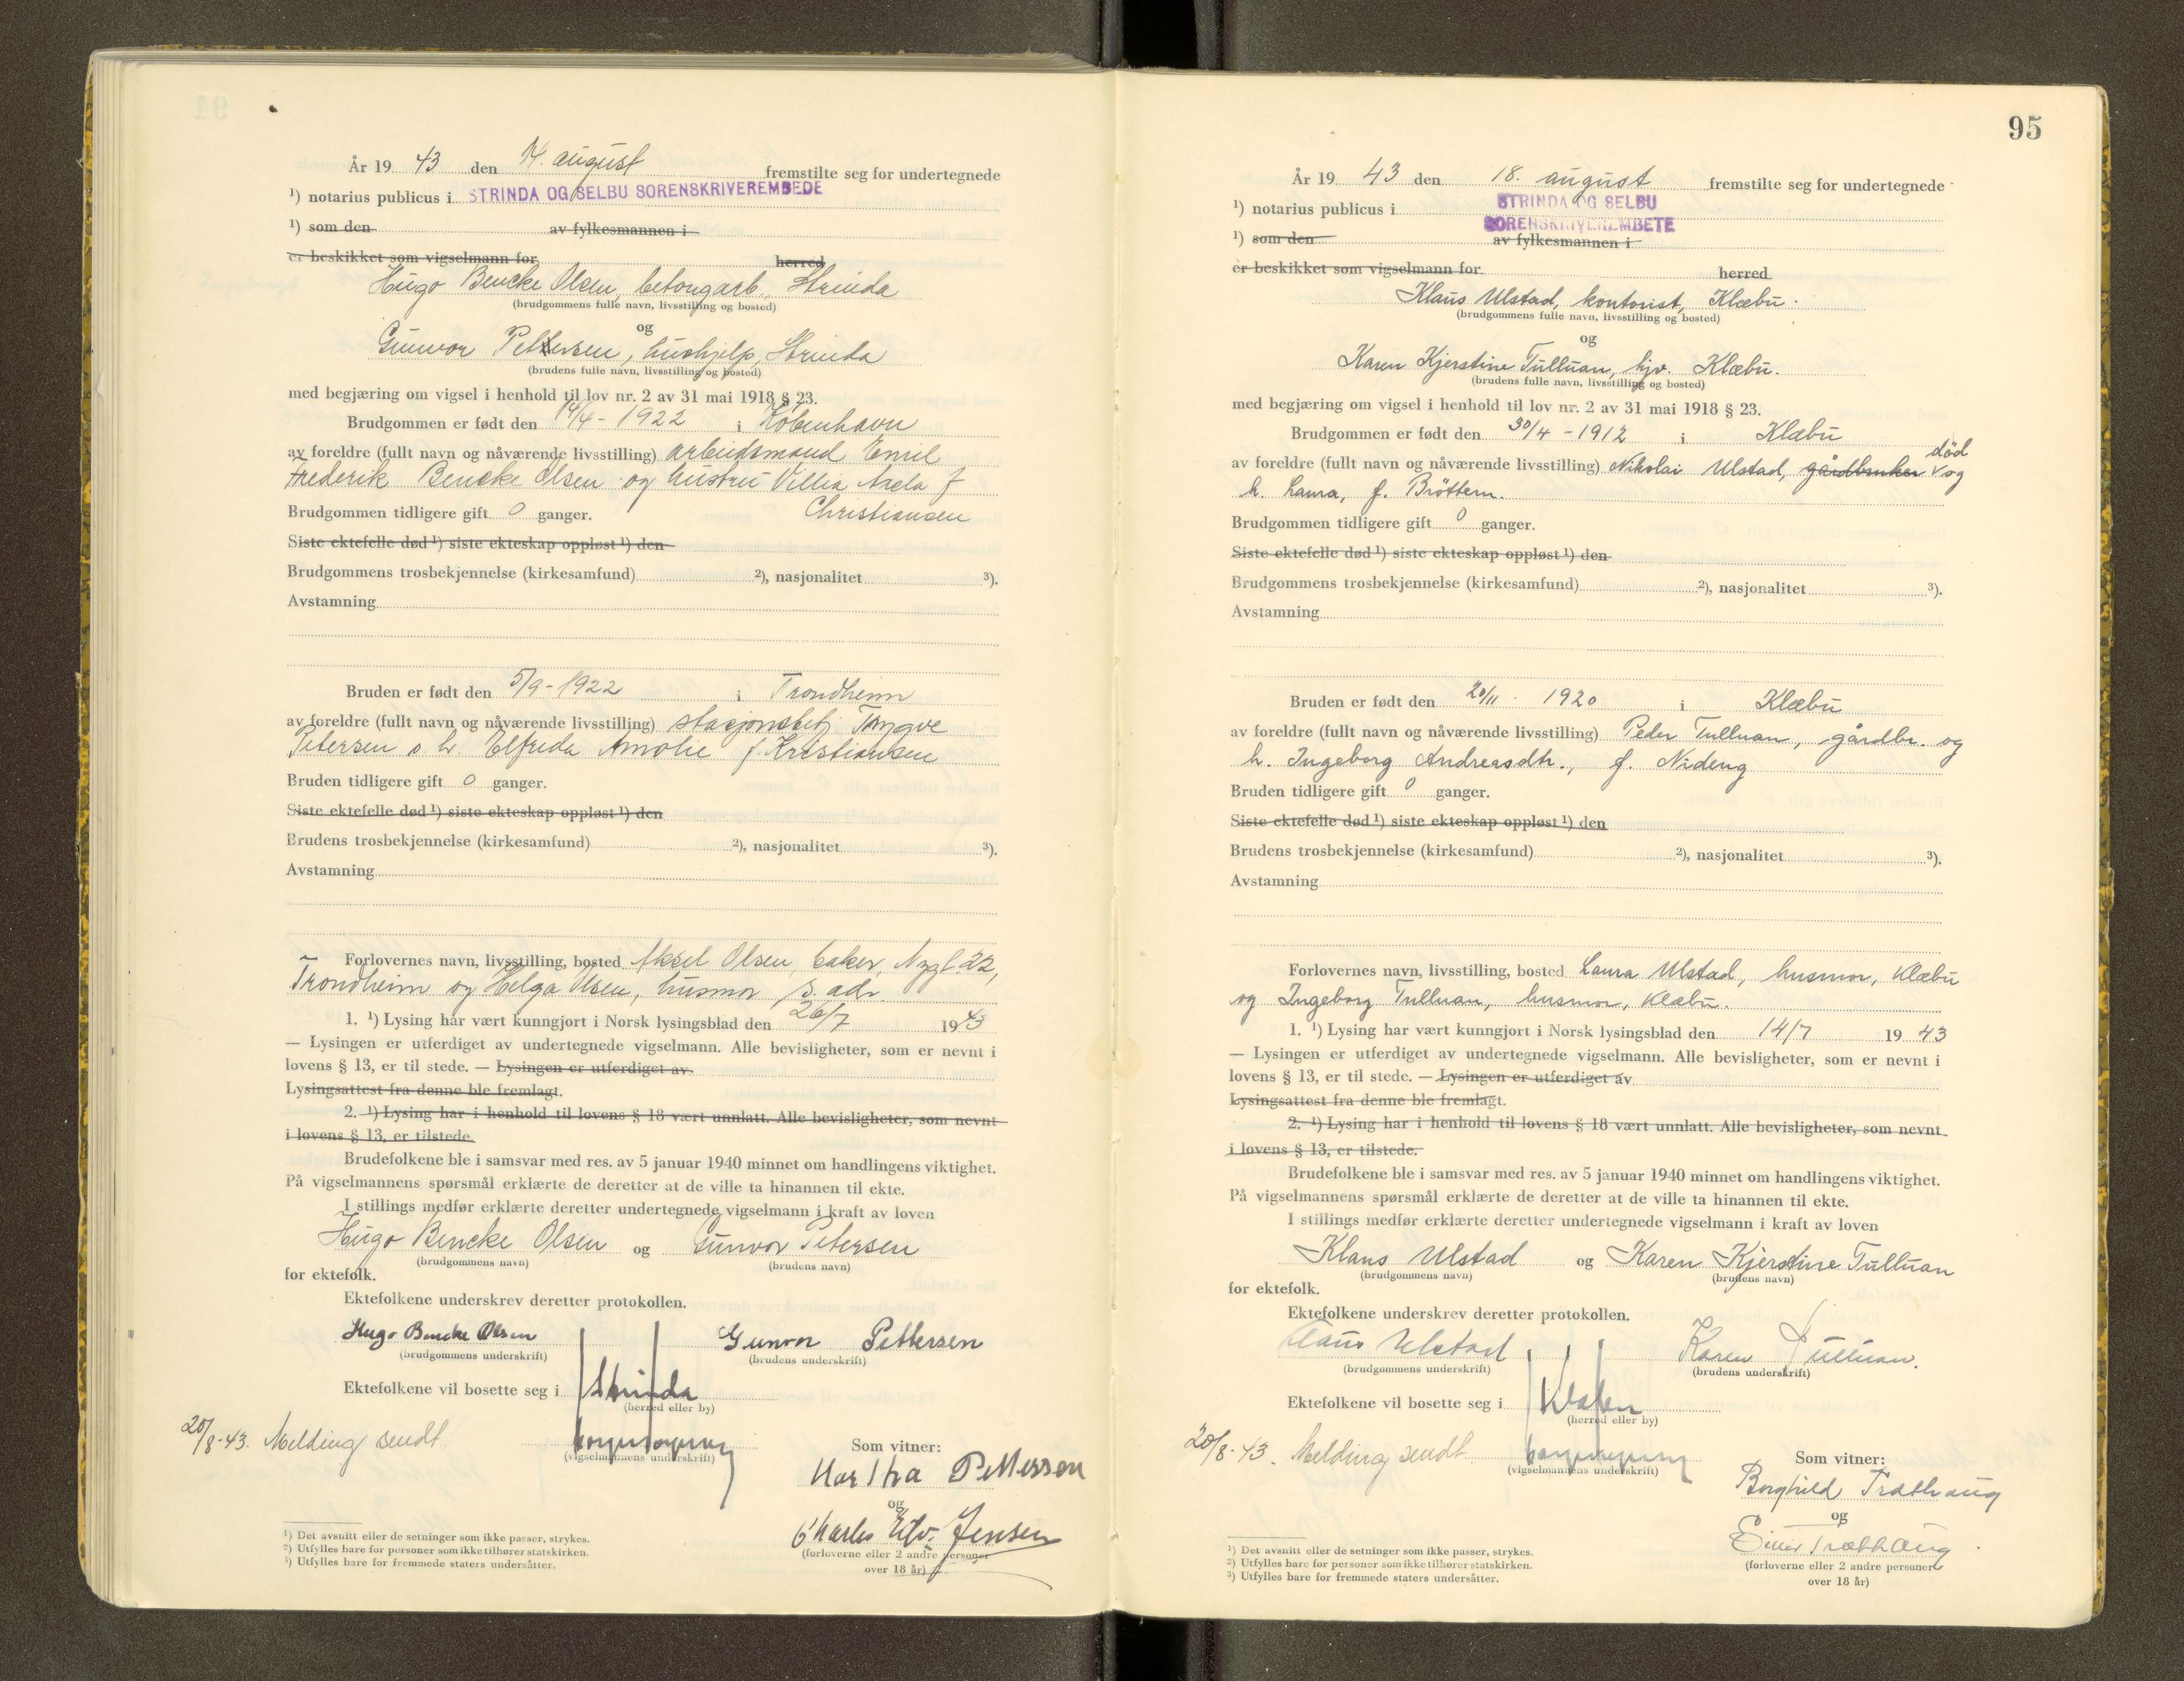 År 19 43 den 14. august fremstilte seg for undertegnede
¹) notarius publicus i STRINDA OG SELBU SORENSKRIVEREMBEDE
¹) som den av fylkesmannen i
er beskikket som vigselmann for herred
Hugo Bencke Olsen, betongarb., Strinda
(brudgommens fulle navn, livsstilling og bosted)
og
Gunvor Pettersen, hushjelp, Strinda
(brudens fulle navn, livsstilling og bosted)
med begjæring om vigsel i henhold til lov nr. 2 av 31 mai 1918 § 23.
Brudgommen er født den 14/4 - 1922 i København
av foreldre (fullt navn og nåværende livsstilling) arbeidsmand Emil
Frederik Bencke Olsen og hustru Villia Axela f
Christiansen
Brudgommen tidligere gift 0 ganger.
Siste ektefelle død ¹) siste ekteskap oppløst ¹) den
Brudgommens trosbekjennelse (kirkesamfund) ²), nasjonalitet ³).
Avstamning
Bruden er født den 5/9 - 1922 i Trondheim
av foreldre (fullt navn og nåværende livsstilling) stasjonsbetj. Tryggve
Petersen o. h. Elfreda Amolie f. Kristiansen
Bruden tidligere gift 0 ganger.
Siste ektefelle død ¹) siste ekteskap oppløst ¹) den
Brudens trosbekjennelse (kirkesamfund) ²), nasjonalitet ³).
Avstamning
Forlovernes navn, livsstilling, bosted Aksel Olsen, baker, 22,
Trondheim og Helga Olsen, husmor s. adr.
1. ¹) Lysing har vært kunngjort i Norsk lysingsblad den 26/7 19 43
— Lysingen er utferdiget av undertegnede vigselmann. Alle bevisligheter, som er nevnt i
lovens § 13, er til stede. — Lysingen er utferdiget av
Lysingsattest fra denne ble fremlagt.
2. ¹) Lysing har i henhold til lovens § 18 vært unnlatt. Alle bevisligheter, som nevnt
i lovens § 13, er tilstede.
Brudefolkene ble i samsvar med res. av 5 januar 1940 minnet om handlingens viktighet.
På vigselmannens spørsmål erklærte de deretter at de ville ta hinannen til ekte.
I stillings medfør erklærte deretter undertegnede vigselmann i kraft av loven
Hugo Bencke Olsen og Gunvor Petersen
(brudgommens navn) (brudens navn)
for ektefolk.
Ektefolkene underskrev deretter protokollen.
Hugo Bencke Olsen Gunvor Pettersen
(brudgommens underskrift) (brudens underskrift)
Ektefolkene vil bosette seg i Strinda
(herred eller by)
20/8-43. Melding sendt
(vigselmannens underskrift)
Som vitner:
Martha Pettersen
og
Charles Edv. Jensen
(forloverne eller 2 andre personer
over 18 år)
¹) Det avsnitt eller de setninger som ikke passer, strykes.
²) Utfylles bare for personer som ikke tilhører statskirken.
³) Utfylles bare for fremmede staters undersåtter.
95
År 19 43 den 18. august fremstilte seg for undertegnede
¹) notarius publicus i STRINDA OG SELBU
SORENSKRIVEREMBETE
¹) som den av fylkesmannen i
er beskikket som vigselmann for herred
Klaus Ulstad, kontorist, Klæbu.
(brudgommens fulle navn, livsstilling og bosted)
og
Karen Kjerstine Tulluan, hjv. Klæbu.
(brudens fulle navn, livsstilling og bosted)
med begjæring om vigsel i henhold til lov nr. 2 av 31 mai 1918 § 23.
Brudgommen er født den 30/4 - 1912 i Klæbu
død
av foreldre (fullt navn og nåværende livsstilling) Nikolai Ulstad, gårdbruker og
h. Laura, f. Brøttem.
Brudgommen tidligere gift 0 ganger.
Siste ektefelle død ¹) siste ekteskap oppløst ¹) den
Brudgommens trosbekjennelse (kirkesamfund) ²), nasjonalitet ³).
Avstamning
Bruden er født den 20/11 . 1920 i Klæbu
av foreldre (fullt navn og nåværende livsstilling) Peder Tulluan, gårdbr. og
h. Ingeborg Andreasdtr., f. Nideng
Bruden tidligere gift 0 ganger.
Siste ektefelle død ¹) siste ekteskap oppløst ¹) den
Brudens trosbekjennelse (kirkesamfund) ²), nasjonalitet ³).
Avstamning
Forlovernes navn, livsstilling, bosted Laura Ulstad, husmor, Klæbu
og Ingeborg Tulluan, husmor, Klæbu.
1. ¹) Lysing har vært kunngjort i Norsk lysingsblad den 14/7 19 43
— Lysingen er utferdiget av undertegnede vigselmann. Alle bevisligheter, som er nevnt i
lovens § 13, er til stede. — Lysingen er utferdiget av
Lysingsattest fra denne ble fremlagt.
2. ¹) Lysing har i henhold til lovens § 18 vært unnlatt. Alle bevisligheter, som nevnt
i lovens § 13, er tilstede.
Brudefolkene ble i samsvar med res. av 5 januar 1940 minnet om handlingens viktighet.
På vigselmannens spørsmål erklærte de deretter at de ville ta hinannen til ekte.
I stillings medfør erklærte deretter undertegnede vigselmann i kraft av loven
Klaus Ulstad og Karen Kjerstine Tulluan
(brudgommens navn) (brudens navn)
for ektefolk.
Ektefolkene underskrev deretter protokollen.
Claus Ulstad Karen Tulluan.
(brudgommens underskrift) (brudens underskrift)
Ektefolkene vil bosette seg i Klæbu
(herred eller by)
20/8-43. Melding sendt
(vigselmannens underskrift)
Som vitner:
Borghild Træthaug
og
Einar Træthaug
(forloverne eller 2 andre personer
over 18 år)
¹) Det avsnitt eller de setninger som ikke passer, strykes.
²) Utfylles bare for personer som ikke tilhører statskirken.
³) Utfylles bare for fremmede staters undersåtter.